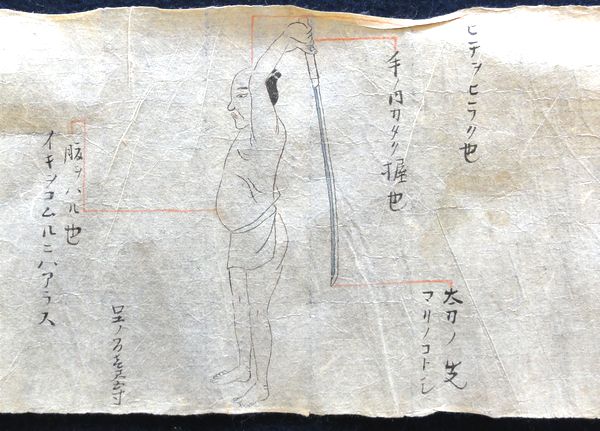 ヒチヲヒラク也
手ノ内カタク握也
太刀ノ先
マリノコトシ
足ノ間壱尺三寸
腹ヲハル也
イキヲコムルニハアラス